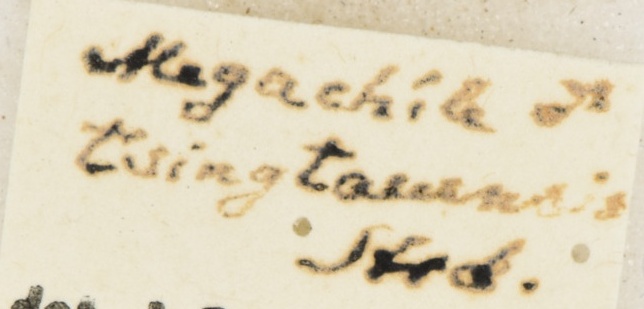 Megachile ♂
tsingtauensis
Strd.